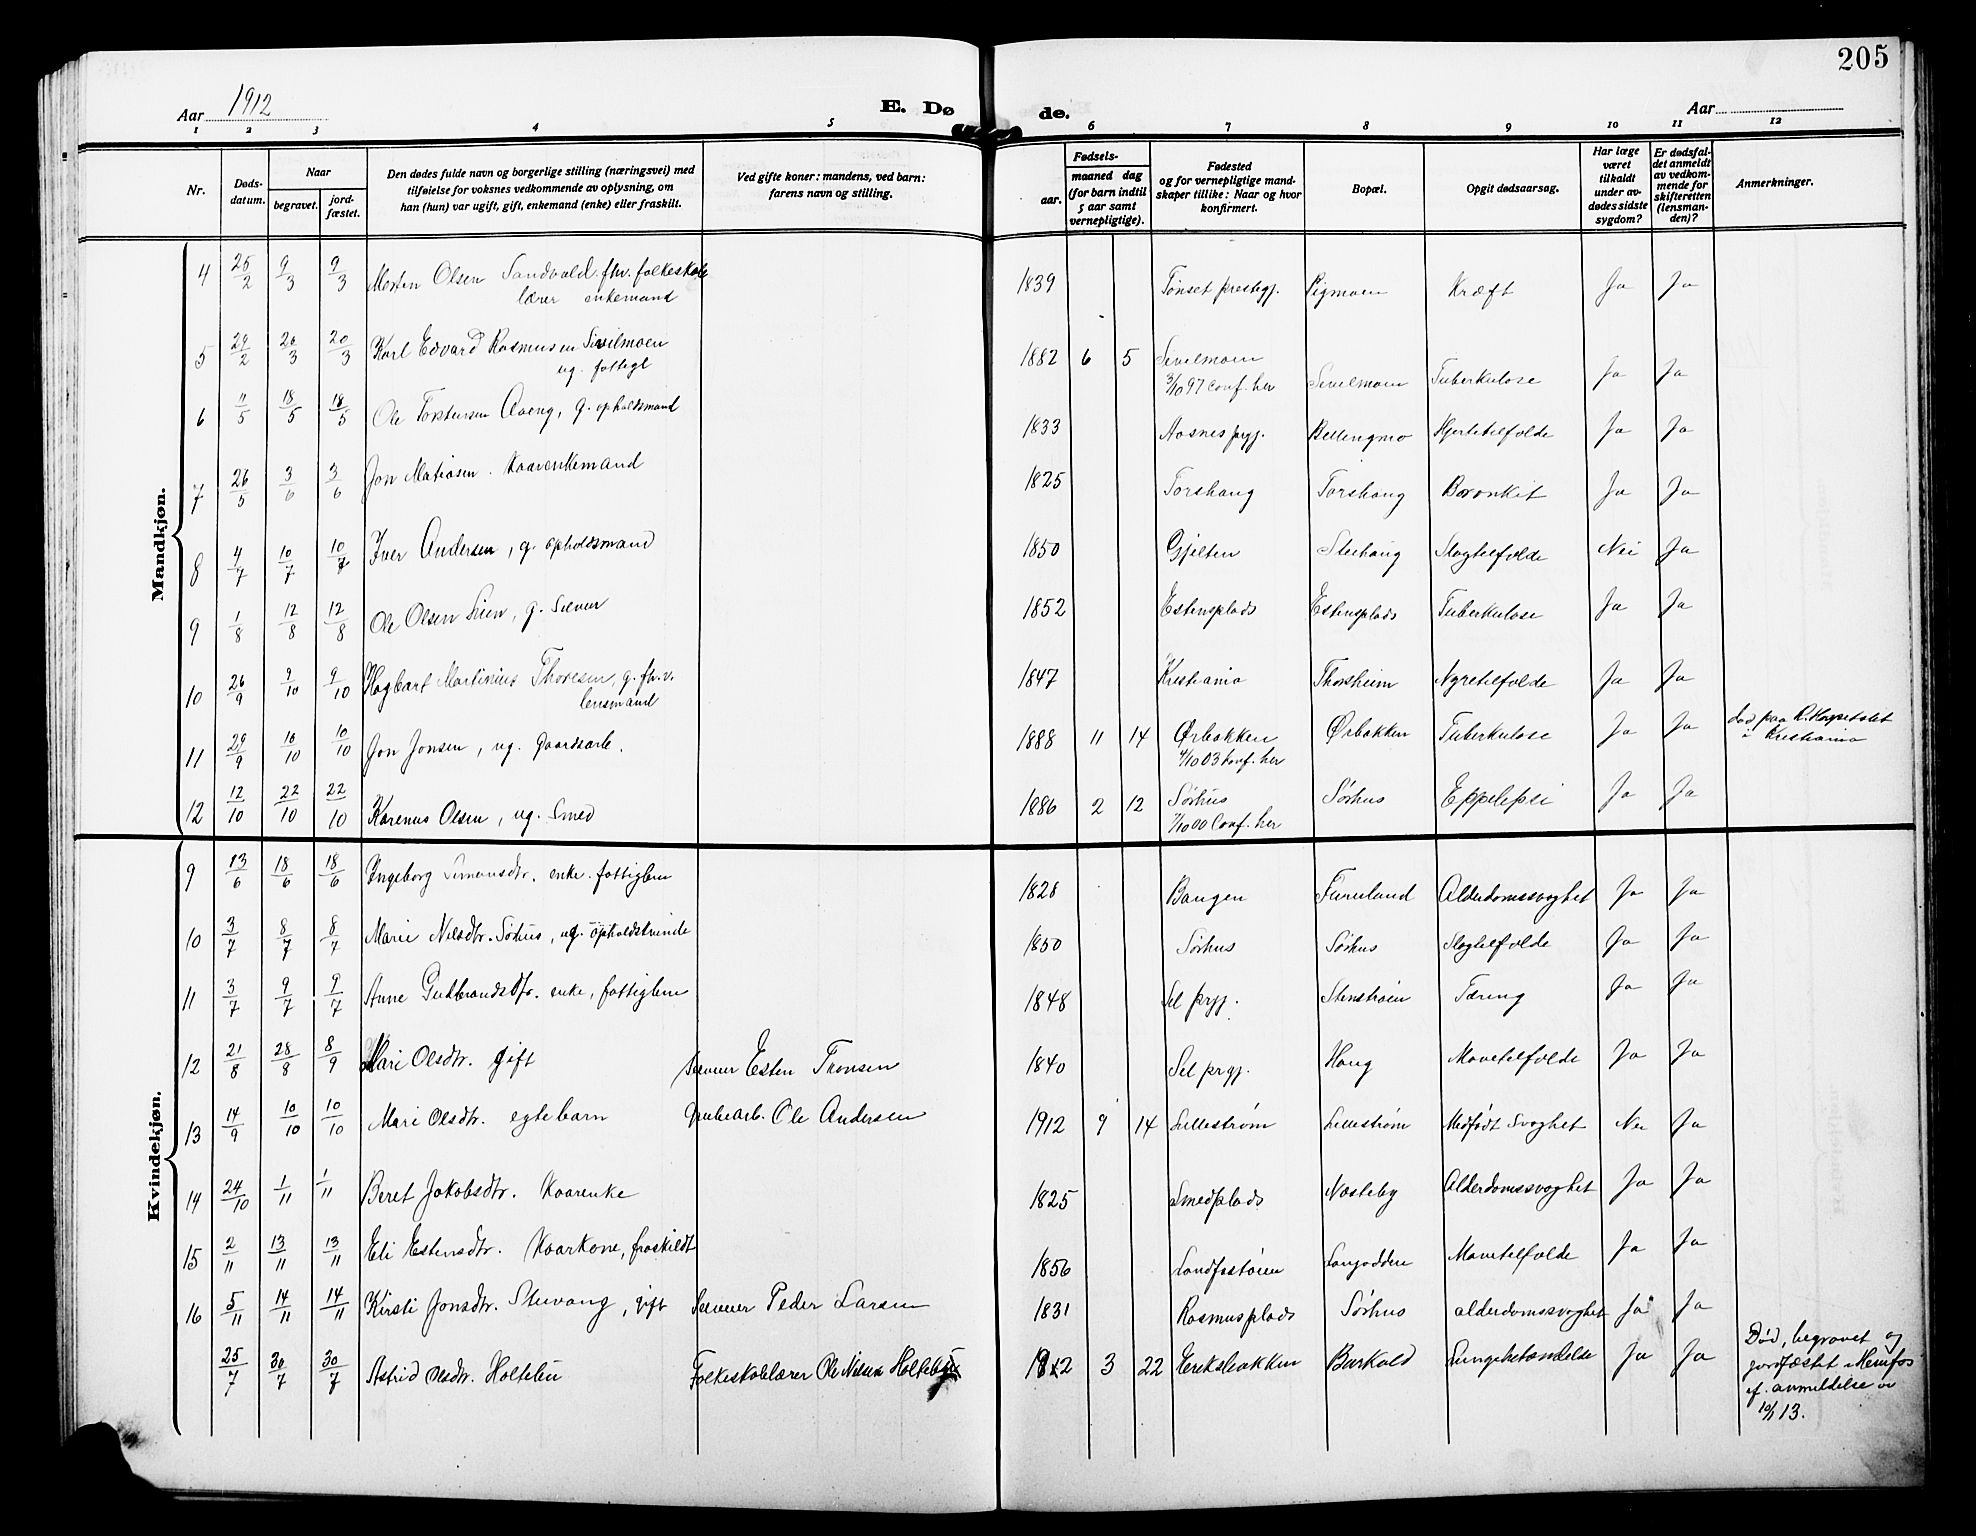 205
Aar 1912
E. Døde.
Aar
1 2 3 4 5 6 7 8 9 10 11 12
Nr.
Døds-
datum.
Naar
begravet.
jord-
fæstet.
Den dødes fulde navn og borgerlige stilling (næringsvei) med
tilføielse for voksnes vedkommende av oplysning, om
han (hun) var ugift, gift, enkemand (enke) eller fraskilt.
Ved gifte koner: mandens, ved barn:
farens navn og stilling.
Fødsels-
aar.
maaned dag
(for barn indtil
5 aar samt
vernepligtige).
Fødested
og for vernepligtige mand-
skaper tillike: Naar og hvor
konfirmert.
Bopæl.
Opgit dødsaarsag.
Har læge
været
tilkaldt
under av-
dødes sidste
sygdom?
Er dødsfal-
det anmeldt
av vedkom-
mende for
skifteretten
(lensman-
den)?
Anmerkninger.
Mandkjøn.
4 25/2 9/3 9/3 Morten Olsen Sandvold. fhv. folkeskole 1839 Tønset prestegj. Pigmoen Kræft Ja Ja
lærer enkemand
5 29/2 20/3 20/3 Karl Edvard Rasmussen Sivilmoen 1882 6 5 Sivilmoen Sivilmoen Tuberkulose Ja Ja
ug. fattigl
3/10 97 conf. her
6 11/5 18/5 18/5 Ole Torstensen Aaeng, g. opholdsmand 1833 Aasnes prgj. Bellingmo Hjertetilfælde Ja Ja
7 26/5 3/6 3/6 Jon Matiasen. Kaarenkemand 1825 Torshaug Torshaug Bronkit Ja Ja
8 4/7 10/7 10/7 Iver Andersen, g. opholdsmand 1850 Gjelten Sluhaug Slagtilfælde Nei Ja
9 1/8 12/8 12/8 Ole Olsen Lien, g. Selveier 1852 Estensplads Estensplads Tuberkulose Ja Ja
10 26/9 9/10 9/10 Hagbart Martinius Thoresen, g. fh.v. 1847 Kristiania Thorsheim Nyretilfælde Ja Ja
lensmand
11 29/9 10/10 10/10 Jon Jonsen, ug. Gaardsarb. 1888 11 14 Ørbakken Ørbakken Tuberkulose Ja Ja død paa R. Hospitalet
4/10 03 konf. her
i Kristiania
12 12/10 22/10 22/10 Karenus Olsen, ug. Smed 1886 2 12 Sørhus Sørhus Eppelepsi Ja Ja
7/10 00 Conf. her
Kvindekjøn.
9 13/6 18/6 18/6 Ingeborg Simonsdtr. enke. fattiglem 1828 Baugen Furuland Alderdomssvaghet Ja Ja
10 3/7 8/7 8/7 Marie Nilsdtr. Sørhus, ug. opholdskvinde 1850 Sørhus Sørhus Slagtilfælde Ja Ja
11 3/7 9/7 9/7 Anne Gudbrandsdtr. enke, fattiglem 1848 Sel prgj. Stenstrøien Tæring Ja Ja
12 21/8 28/8 8/9 Mari Olsdtr. gift Selveier Esten Tronsen 1840 Sel prgj. Haug Mavetilfælde Ja Ja
13 14/9 10/10 10/10 Mari Olsdtr. egtebarn Grubearb. Ole Andersen 1912 9 14 Lillestrøm Lillestrøm Medfødt Svaghet Nei Ja
14 24/10 1/11 1/11 Beret Jakobsdtr. Kaarenke 1825 Smedplads Næsteby Alderdomssvaghet Ja Ja
15 2/11 13/11 13/11 Eli Estensdtr. Kaarkone, fraskildt 1856 Sandfostøien Langodden Mavetilfælde Ja Ja
16 5/11 14/11 14/11 Kirsti Jonsdtr. Stuvang, gift Selveier Peder Larsen 1831 Rasmusplads Sørhus alderdomssvaghet Ja Ja
25/7 30/7 30/7 Astrid Olsdtr. Holtebu Folkeskolelærer Ole Nilsen Holtebu 1912 3 22 Eriksbakken Barkald Lungebetændelse Ja Ja
Død, begravet og
jordfæstet i Hemfos
ef. anmeldelse av
10/1 13.